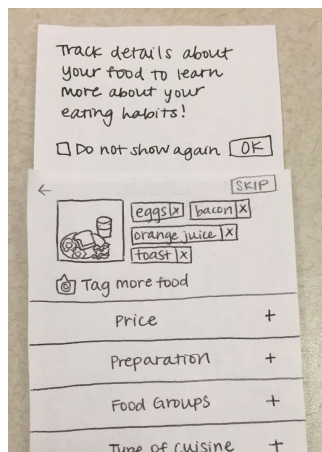 Track details about
your food to learn
more about your
eating habits!
Do not show again OK
SKIP
eggs x bacon x
orange juice x
toast x
Tag more food
Price +
Preparation +
Food Groups +
Type of cuisine +